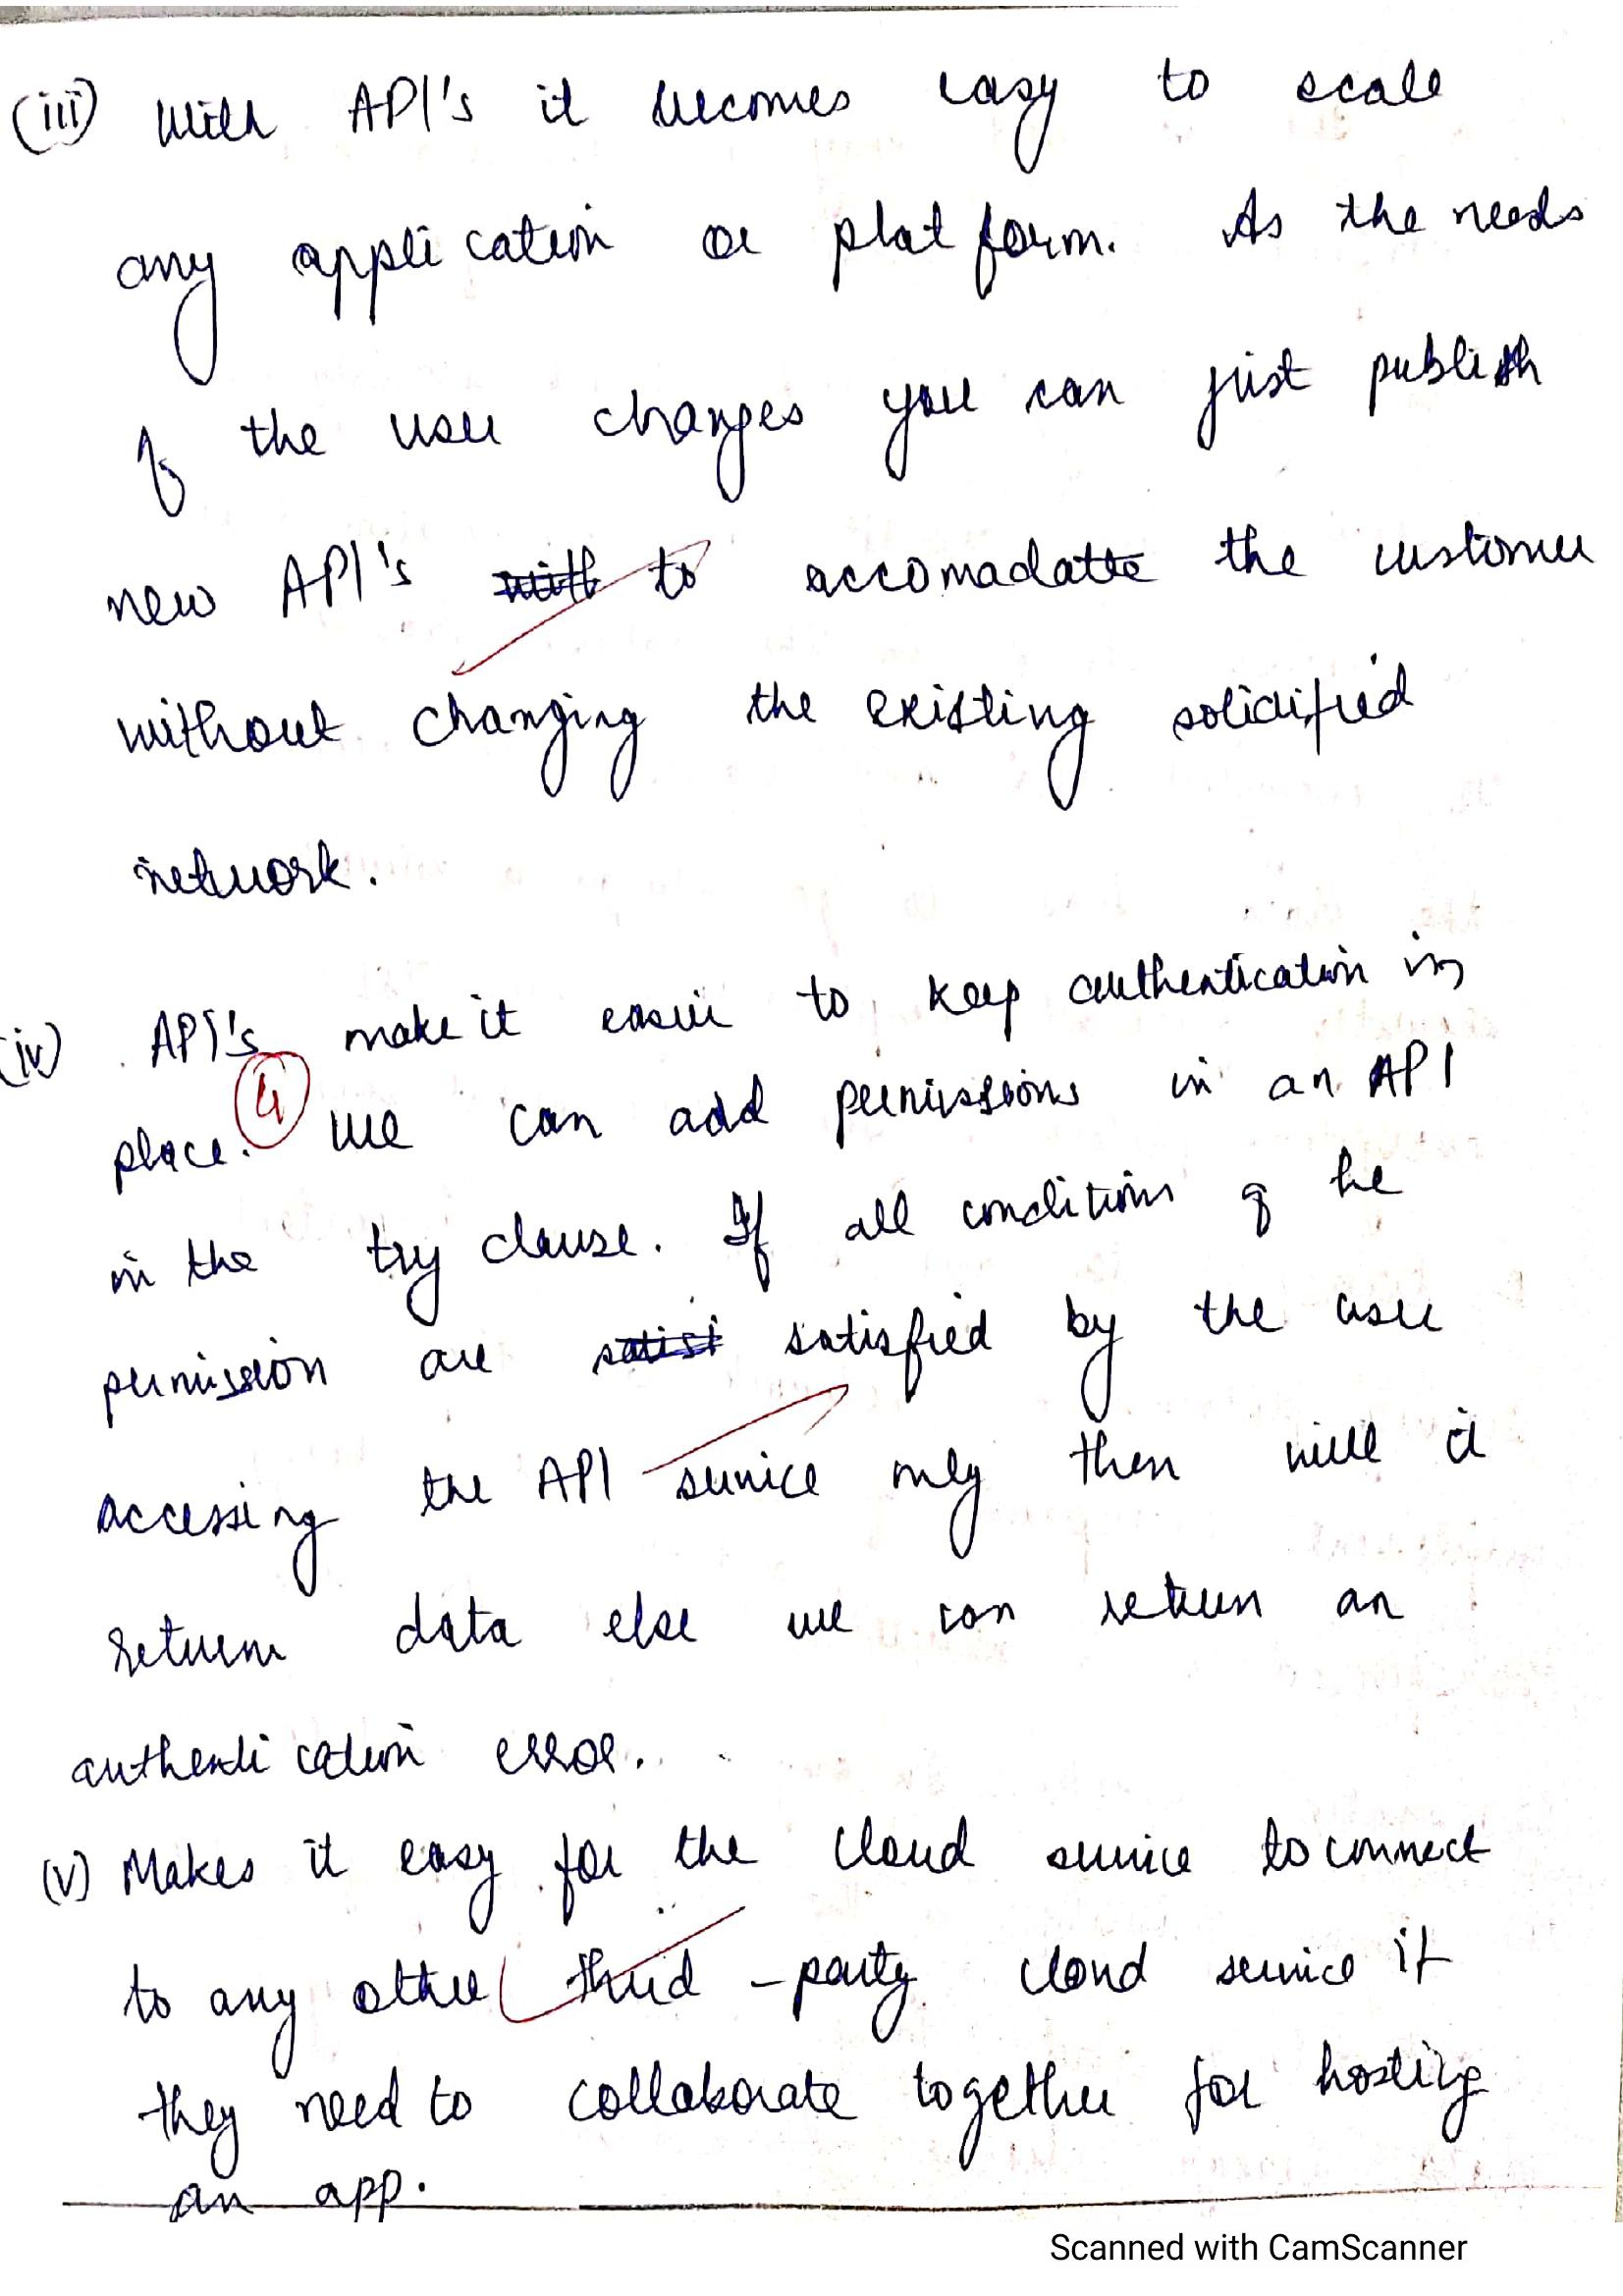 (iii) With API's it becomes easy to scale
any application or platform. As the needs
of the user changes you can just publish
new API's with to accomadatte the customer
without changing the existing solidified
network.
(iv) API's make it easier to keep authentication in
place. 4 We can add permissions in an API
in the try clause. If all conditions of he
permission are satisf satisfied by the user
accessing the API service only then will it
return data else we can return an
authentication error.
(v) Makes it easy for the cloud service to connect
to any other third-party cloud service if
they need to collaborate together for hosting
an app.
Scanned with CamScanner